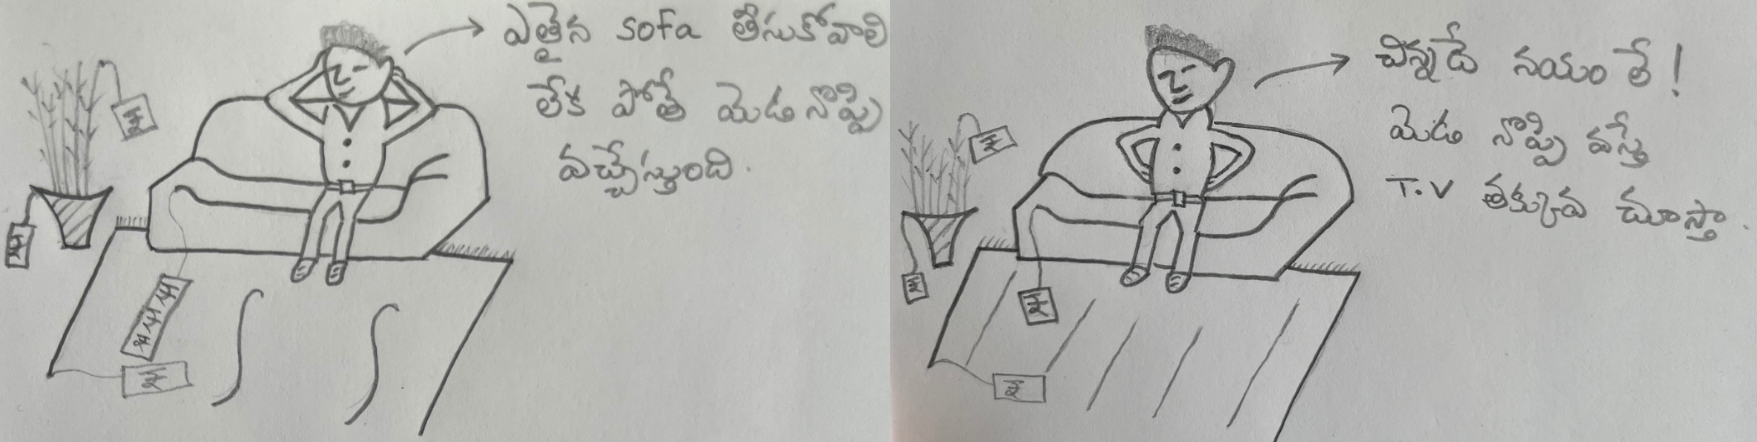 ఎత్తైన sofa తీసుకోవాలి
లేక పోతే మెడ నొప్పి
వచ్చేస్తుంది.
₹
₹
₹ ₹ ₹
₹
చిన్నదే నయం లే!
మెడ నొప్పి వస్తే
T.V తక్కువ చూస్తా.
₹
₹
₹
₹